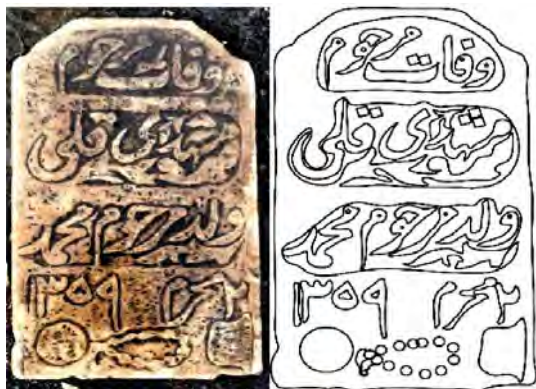 وفات مرحوم
مشهدی قلی
ولد مرحوم محمد
۱۳۵۹
وفات مرحوم
مشهدی قلی
ولد مرحوم محمد
۱۳۵۹